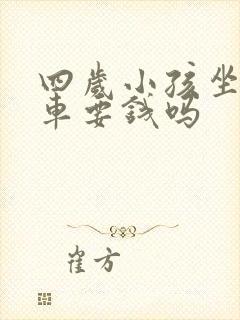 四歲小孩坐
車要錢嗎
崔方